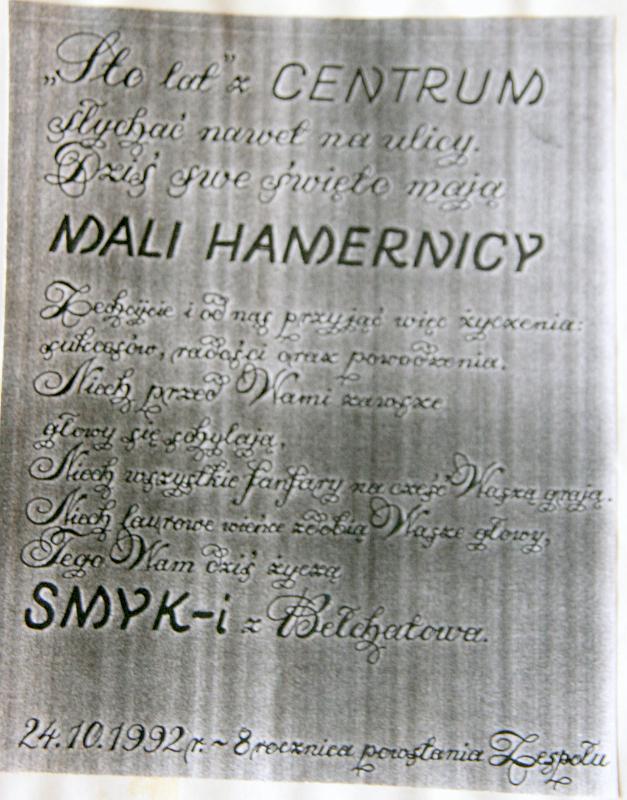 „Sto lat” z CENTRUM
słychać nawet na ulicy.
Dziś swe święto mają
MALI HAMERNICY
Zechciejcie i od nas przyjąć więc życzenia:
sukcesów, radości oraz powodzenia.
Niech przed Wami zawsze
głowy się schylają,
Niech wszystkie fanfary na cześć Waszą grają.
Niech laurowe wieńce zdobią Wasze głowy,
Tego Wam dziś życzą
SMYK-i z Bełchatowa.
24.10.1992 r. ~ 8 rocznica powstania Zespołu